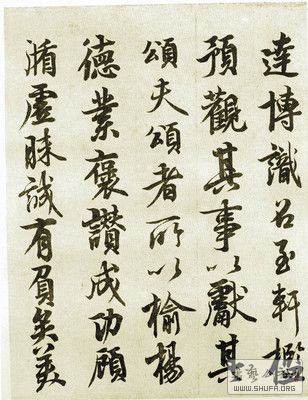 達博識召至軒檻
預觀其事以獻其
頌夫頌者所以揄揚
德業褒讚成功顧
循虛昧誠有負矣美
WWW.SHUFA.ORG